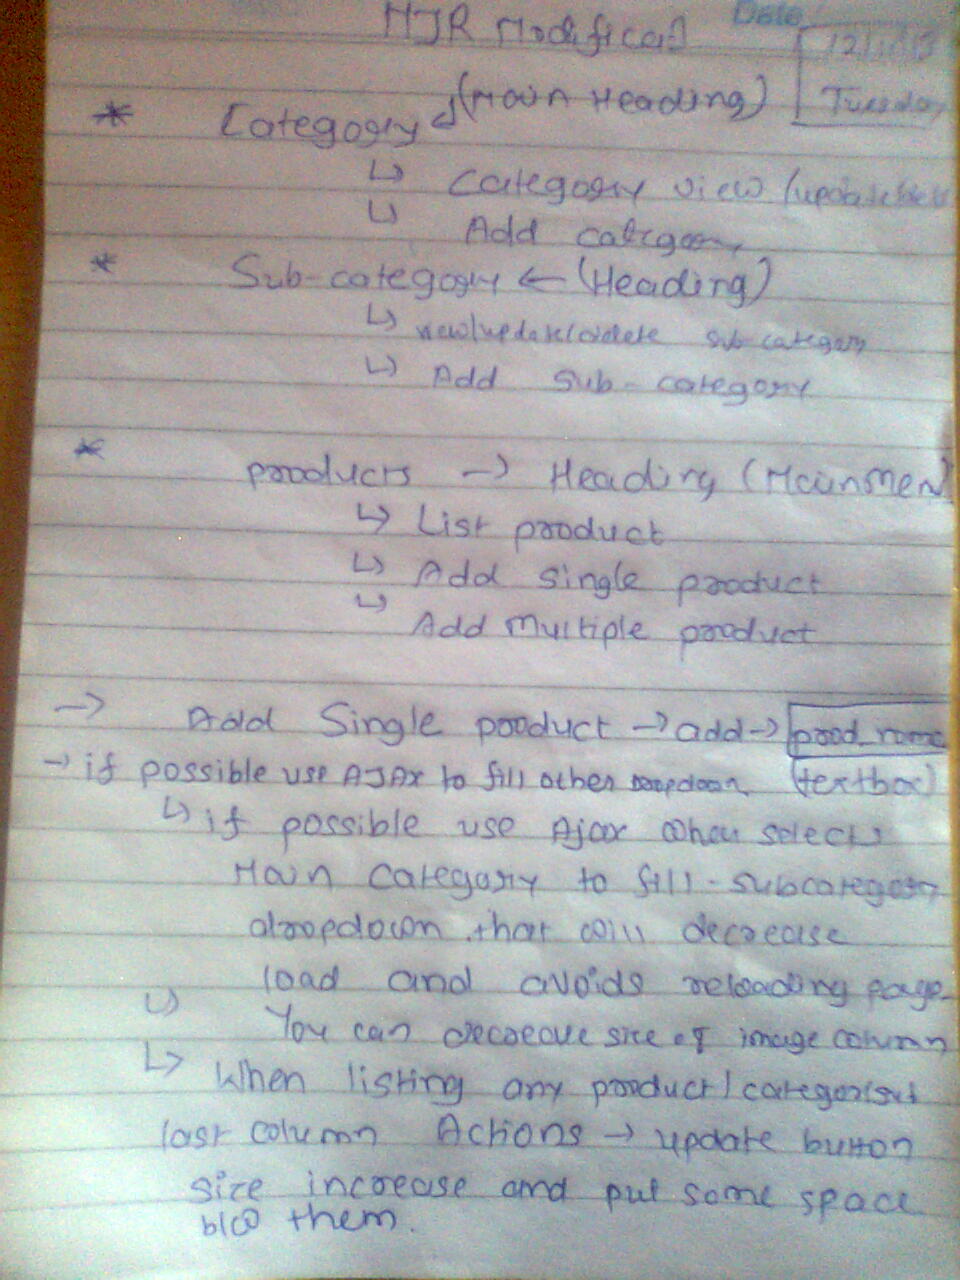 MJR Modification
Date
12/11/13
Tuesday
* Category ↲ (Main Heading)
↳ Category view /update/
↳ Add category
* Sub-category ← (Heading)
↳ view/update/delete sub category
↳ Add sub-category
* products → Heading (MainMen
↳ List product
↳ Add single product
↳ Add Multiple product
→ Add Single product → add → prod_name
→ if possible use AJAX to fill other dropdown (textbox)
↳ if possible use Ajax when selects
Main Category to fill-subcategory
dropdown that will decrease
load and avoids reloading page
↳ You can decrease size of image column
↳ When listing any product/category/sub
last column Actions → update button
size increase and put some space
b/w them.